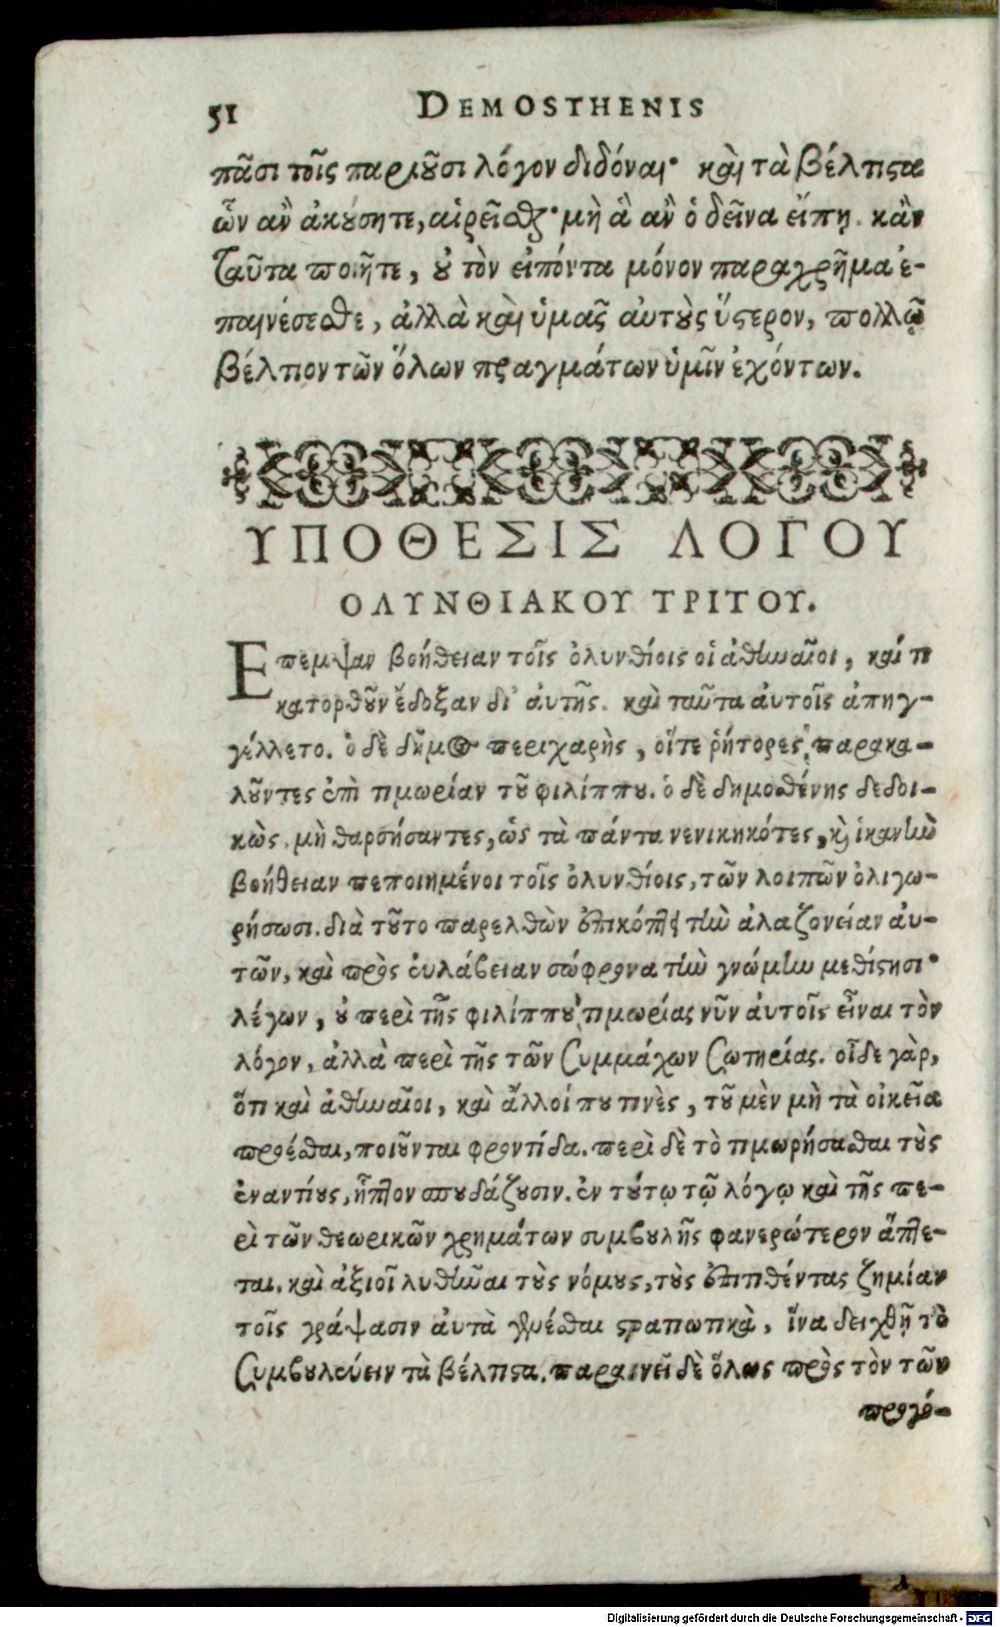 51 DEMOSTHENIS
πᾶσι τοῖς παριοῦσι λόγον διδόναι· καὶ τὰ βέλτιστα
ὧν ἂν ἀκούσητε, αἱρεῖσθε· μὴ ἃ ἂν ὁ δεῖνα εἴπῃ. κἂν
ταῦτα ποιῆτε, οὐ τὸν εἰπόντα μόνον παραχρῆμα ἐ-
παινέσεσθε, ἀλλὰ καὶ ὑμᾶς αὐτοὺς ὕστερον, πολλῷ
βέλτιον τῶν ὅλων πραγμάτων ὑμῖν ἐχόντων.
ΥΠΟΘΕΣΙΣ ΛΟΓΟΥ
ΟΛΥΝΘΙΑΚΟΥ ΤΡΙΤΟΥ.
Επεμψαν βοήθειαν τοῖς ὀλυνθίοις οἱ ἀθηναῖοι, καί τι
κατορθοῦν ἔδοξαν δι' αὐτῆς. καὶ ταῦτα αὐτοῖς ἀπηγ-
γέλλετο. ὁ δὲ δῆμος περιχαρὴς, οἵτε ῥήτορες παρακα-
λοῦντες ἐπὶ τιμωρίαν τοῦ φιλίππου. ὁ δὲ δημοσθένης δεδοι-
κὼς, μὴ θαρσήσαντες, ὡς τὰ πάντα νενικηκότες, καὶ ἱκανὴν
βοήθειαν πεποιημένοι τοῖς ὀλυνθίοις, τῶν λοιπῶν ὀλιγω-
ρήσωσι. διὰ τοῦτο παρελθὼν ἐπικόπτει τὴν ἀλαζονείαν αὐ-
τῶν, καὶ πρὸς εὐλάβειαν σώφρονα τὴν γνώμην μεθίστησι·
λέγων, οὐ περὶ τῆς φιλίππου τιμωρίας νῦν αὐτοῖς εἶναι τὸν
λόγον, ἀλλὰ περὶ τῆς τῶν συμμάχων σωτηρίας. οἶδε γὰρ,
ὅτι καὶ ἀθηναῖοι, καὶ ἄλλοί που τινὲς, τοῦ μὲν μὴ τὰ οἰκεῖα
προέσθαι, ποιοῦνται φροντίδα. περὶ δὲ τὸ τιμωρήσασθαι τοὺς
ἐναντίους, ἧττον σπουδάζουσιν. ἐν τούτῳ τῷ λόγῳ καὶ τῆς πε-
ρὶ τῶν θεωρικῶν χρημάτων συμβουλῆς φανερώτερον ἅπτε-
ται. καὶ ἀξιοῖ λυθῆναι τοὺς νόμους, τοὺς ἐπιτιθέντας ζημίαν
τοῖς γράψασιν αὐτὰ γενέσθαι στρατιωτικὰ, ἵνα δειχθῇ τὸ
συμβουλεύειν τὰ βέλτιστα. παραινεῖ δὲ ὅλως πρὸς τὸν τῶν
προγό-
Digitalisierung gefördert durch die Deutsche Forschungsgemeinschaft - DFG